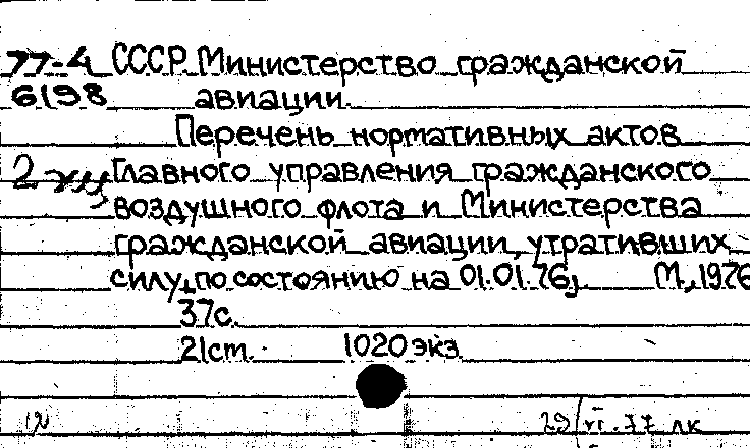 77-4 СССР. Министерство гражданской
6198 авиации.
Перечень нормативных актов
2 Главного управления гражданского
воздушного флота и Министерства
гражданской авиации, утративших
силу, по состоянию на 01.01.76, М., 1976
37с.
21см. 1020 экз.
29/VI-77 лк